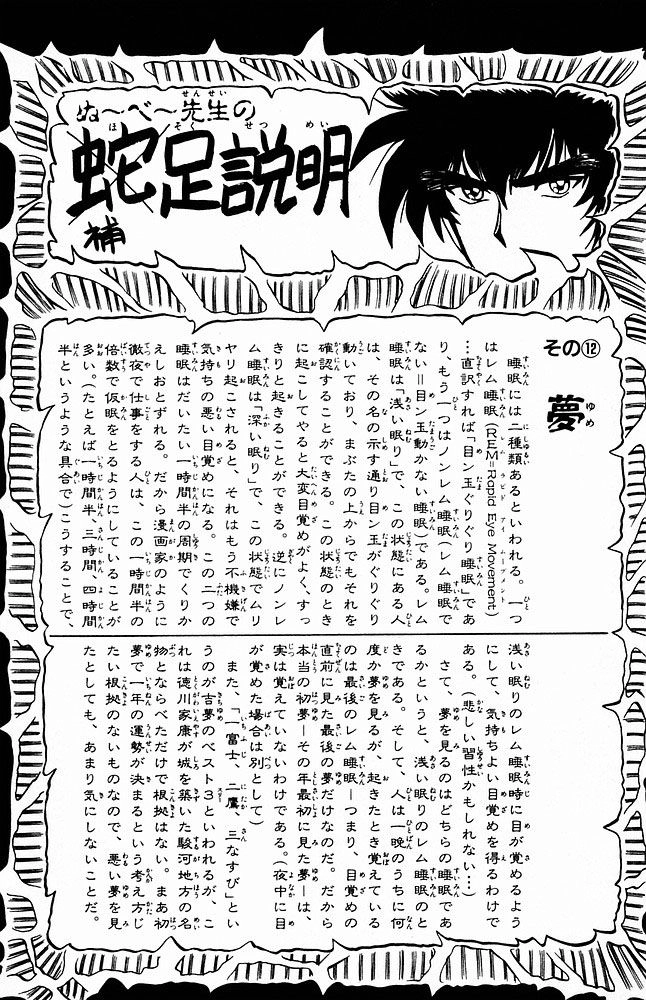 ぬ〜べ〜先生の
蛇足説明
補
その⑫
夢
睡眠には二種類あるといわれる。一つ
はレム睡眠(REM=Rapid Eye Movement)
…直訳すれば「目ン玉ぐりぐり睡眠」であ
り、もう一つはノンレム睡眠(レム睡眠で
ない=目ン玉動かない睡眠)である。レム
睡眠は「浅い眠り」で、この状態にある人
は、その名の示す通り目ン玉がぐりぐり
動いており、まぶたの上からでもそれを
確認することができる。この状態のとき
に起こしてやると大変目覚めがよく、すっ
きりと起きることができる。逆にノンレ
ム睡眠は「深い眠り」で、この状態でムリ
ヤリ起こされると、それはもう不機嫌で
気持ちの悪い目覚めになる。この二つの
睡眠はだいたい一時間半の周期でくりか
えしおとずれる。だから漫画家のように
徹夜で仕事をする人は、この一時間半の
倍数で仮眠をとるようにしていることが
多い。たとえば一時間半、三時間、四時間
半というような具合で)こうすることで、
浅い眠りのレム睡眠時に目が覚めるよう
にして、気持ちよい目覚めを得るわけで
ある。(悲しい習性かもしれない…)
さて、夢を見るのはどちらの睡眠であ
るかというと、浅い眠りのレム睡眠のと
きである。そして、人は一晩のうちに何
度か夢を見るが、起きたとき覚えている
のは最後のレム睡眠―つまり、目覚めの
直前に見た最後の夢だけなのだ。だから
本当の初夢―その年最初に見た夢―は
実は覚えていないわけである。(夜中に目
が覚めた場合は別として)
また、「一富士、二鷹、三なすび」とい
うのが吉夢のベスト3といわれるが、こ
れは徳川家康が城を築いた駿河地方の名
物とならべただけで根拠はない。まあ初
夢で一年の運勢が決まるという考え方じ
たい根拠のないものなので、悪い夢を見
たとしても、あまり気にしないことだ。